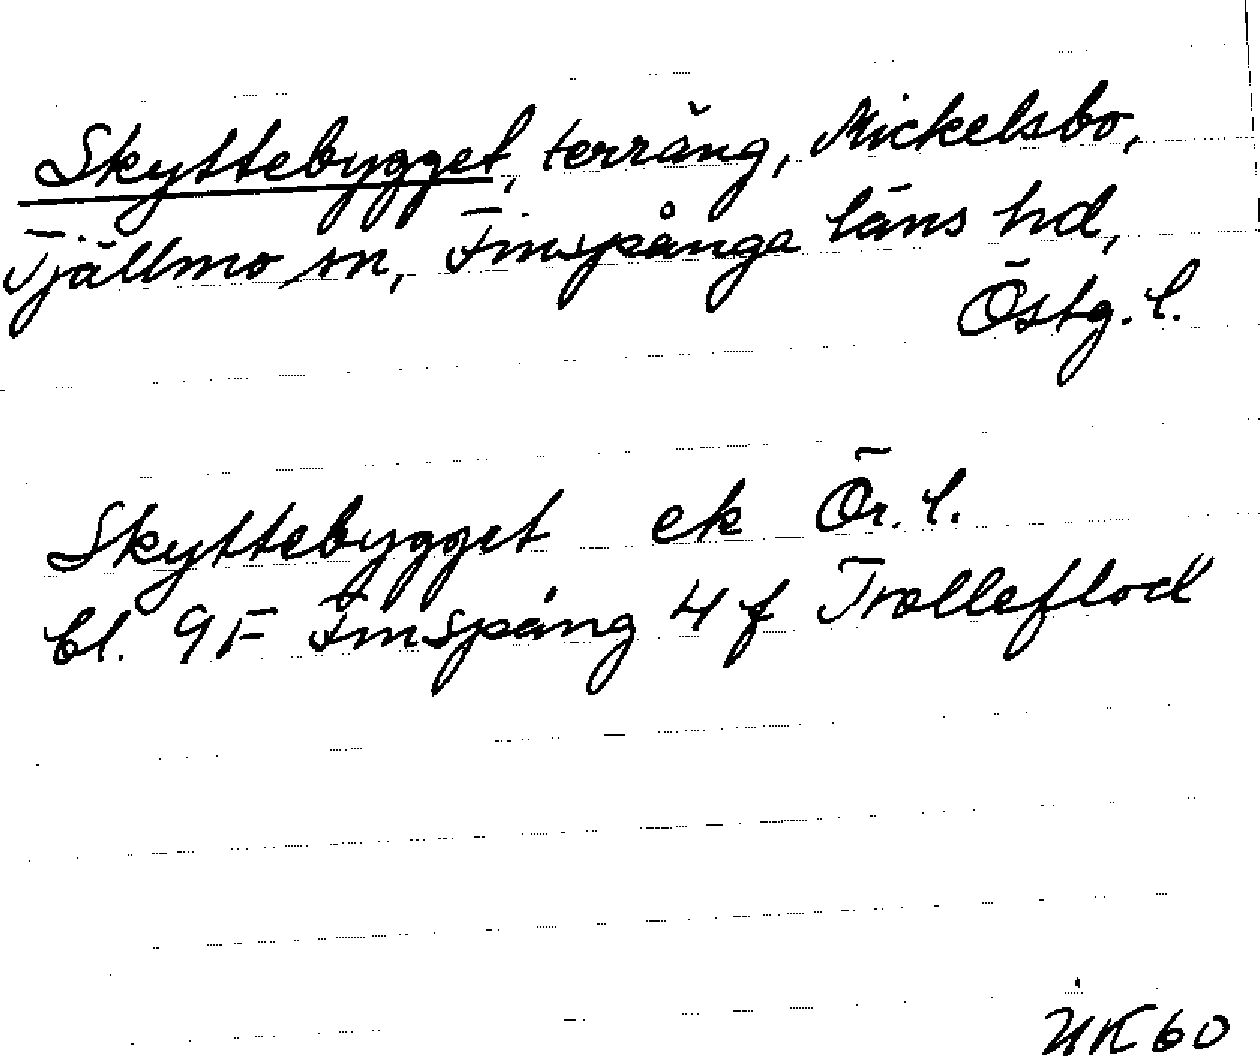 Skyttebygget, terräng, Mickelsbo,
Tjällmo sn, Finspånga läns hd,
Östg. l.
Skyttebygget ek Ör. l.
bl. 9F Finspång 4 f Trolleflod
UK 60